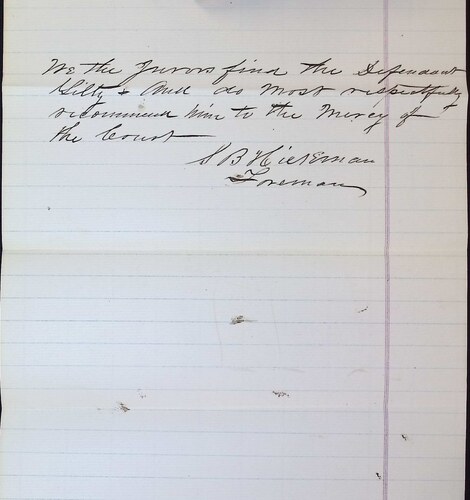 We the Jurors find the Defendant
Gilty & And do most respectfully
recommend him to the Mercy of
the Court
S B Hickman
Foreman